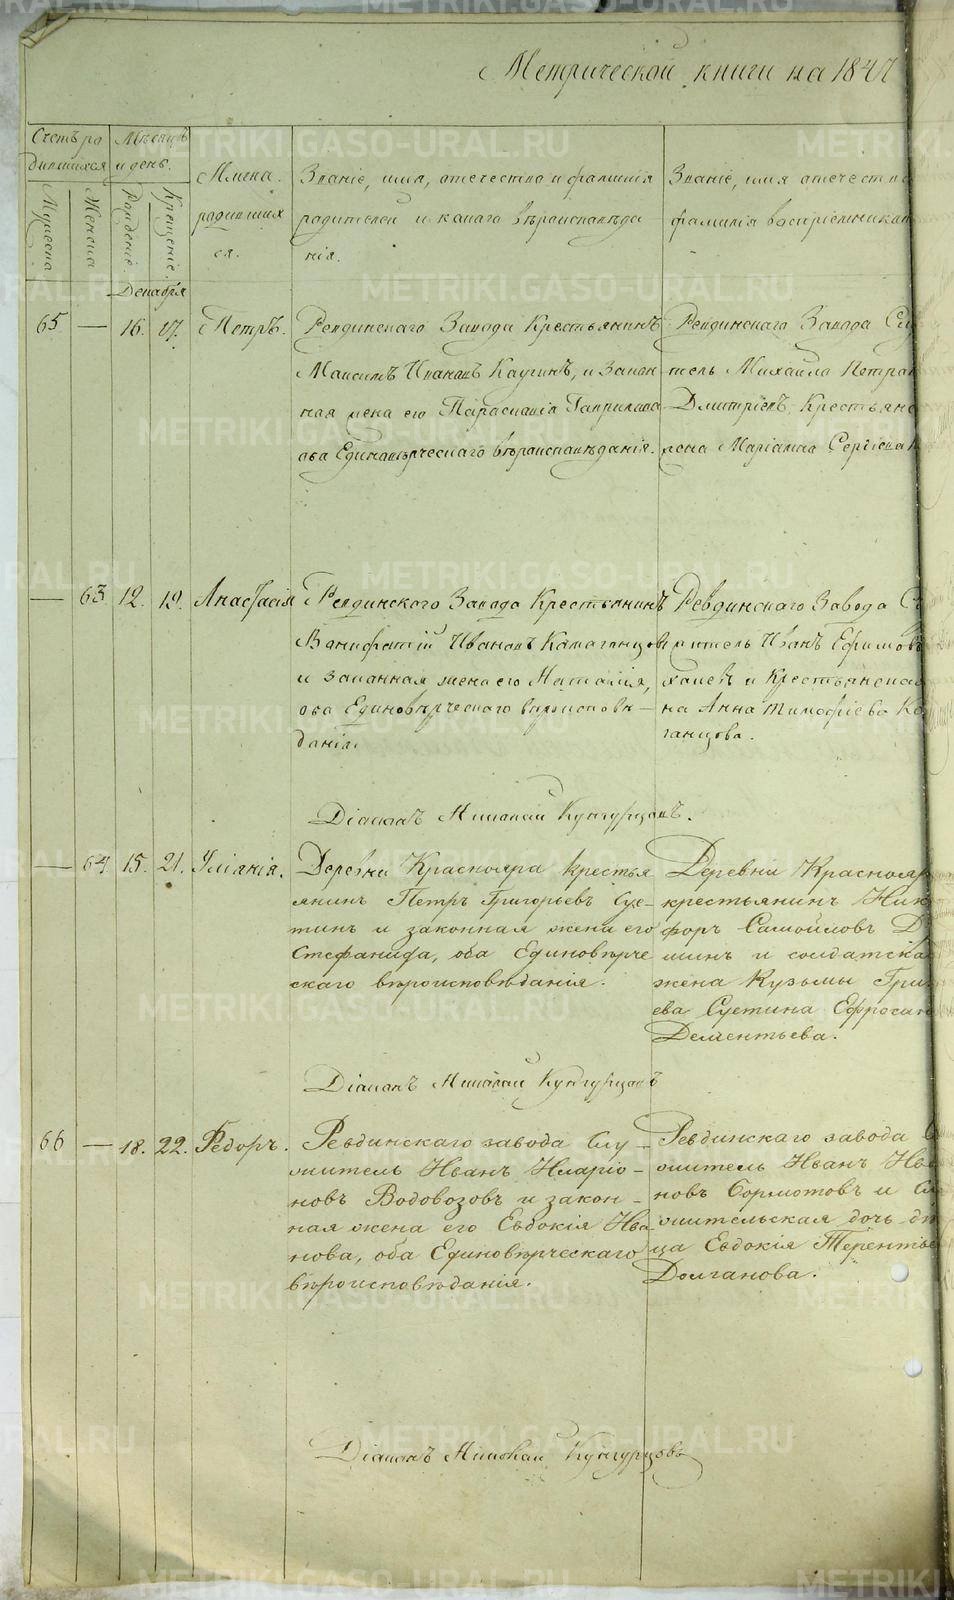 Метрической книги на 1847
Счетъ ро
дившихся
Мѣсяцъ
и день.
Мужеска
Женска
Рожденіе.
Крещеніе
Имена
родивших
ся.
Званіе, имя, отечество и фамилія
родителей и какого вѣроисповѣда
нія.
Званіе, имя отечество
фамилія воспріемников
Декабря
65 — 16. 17. Петръ.
Ревдинскаго Завода Крестьянинъ
Максимъ Ивановъ и Закон
ная жена его Параскавія Гаврилова
оба Единовѣрческаго вѣроисповѣданія.
Ревдинскаго Завода Слу
тель Михайла Петров
Дмитріевъ, Крестьянс
жена Маріамна Сергѣева
— 63 12. 19. Анастасія
Ревдинского Завода Крестьянинъ
Вонифатій Ивановъ Камаганцовъ
и законная жена его Наталія,
оба Единовѣрческаго вѣроисповѣ-
данія.
Ревдинскаго Завода С
житель Иванъ Ефимовъ
и Крестьянская
на Анна Тимофѣева Ка
ганцова.
Діаконъ Николай Кунгурцовъ.
— 64 15. 21. Уліянія.
Деревни Краснояра кресть
янинъ Петръ Григорьевъ Суе-
тинъ и законная жена его
Стефанида, оба Единовѣрче
скаго вѣроисповѣданія.
Деревни Краснояр
крестьянинъ Ники
форъ Самойловъ Д
шинъ и солдатска
жена Кузьмы Григ
ева Суетина Ефросин
Дементьева.
Діаконъ Николай Кунгурцовъ
66 — 18. 22. Ѳедоръ.
Ревдинскаго завода Слу-
житель Иванъ Иларіо-
новъ Водовозовъ и закон-
ная жена его Евдокія Ива-
нова, оба Единовѣрческаго
вѣроисповѣданія.
Ревдинскаго завода С
житель Иванъ Ива
новъ Бормотовъ и Сл
жительская дочь дѣ
ца Евдокія Терентье
Долганова.
Діаконъ Николай Кунгурцовъ
METRIKI.GASO-URAL.RU